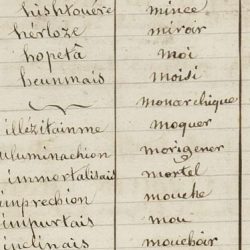 hishtouére mince
hérloze miroir
hopetâ moi
heunmais moisi
monarchique
illézitainme moquer
illuminachion morigéner
immortalisais mortel
imprechion mouche
impurtais mou
inclinais mouchoir